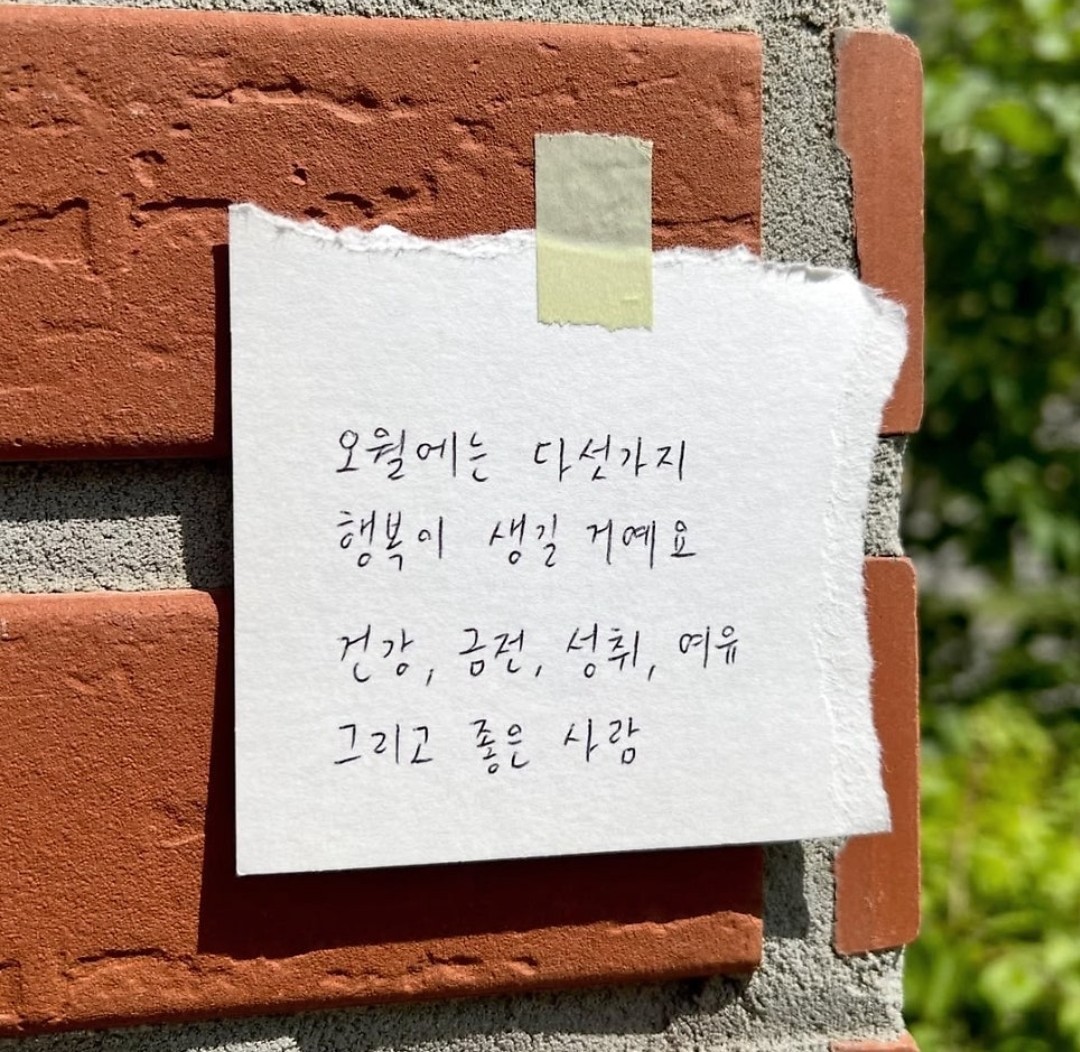 오월에는 다섯가지
행복이 생길 거예요
건강, 금전, 성취, 여유
그리고 좋은 사람